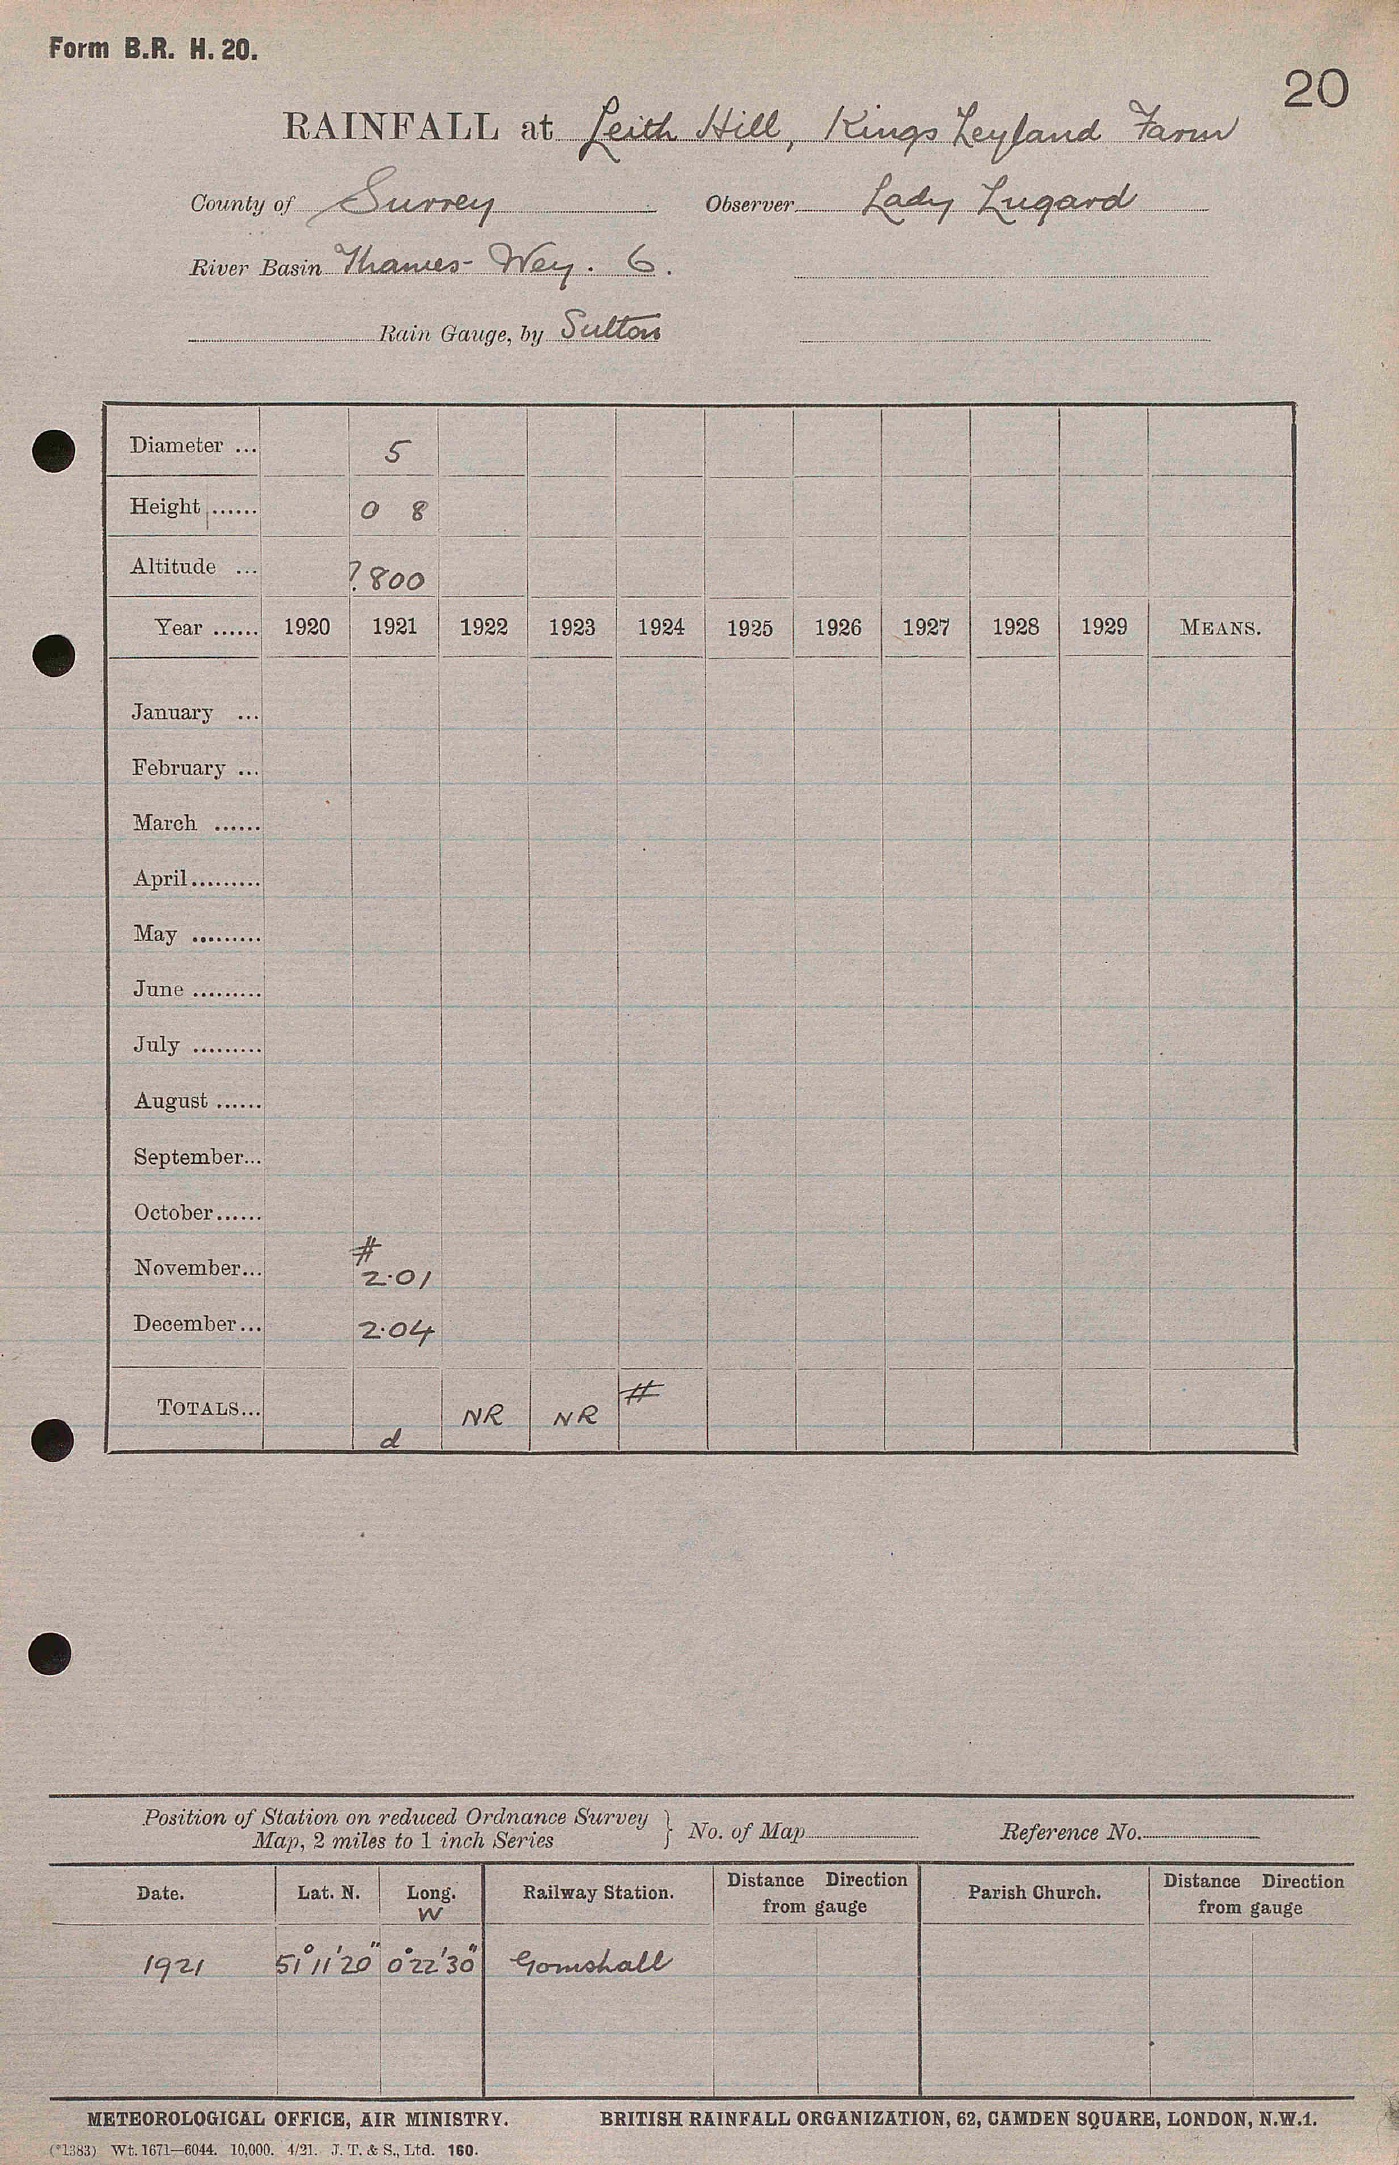 Form B.R. H. 20.
20
RAINFALL at Leith Hill, Kings Leyland Farm
County of Surrey Observer Lady Lugard
River Basin Thames - Wey. 6.
Rain Gauge, by Sutton
Diameter ... 5
Height ...... 0 8
Altitude ... ? 800
Year ...... 1920 1921 1922 1923 1924 1925 1926 1927 1928 1929 MEANS.
January ...
February ...
March ......
April .........
May .........
June .........
July .........
August ......
September...
October......
#
November... 2.01
December... 2.04
TOTALS... NR NR #
d
Position of Station on reduced Ordnance Survey
Map, 2 miles to 1 inch Series } No. of Map Reference No.
Date. Lat. N. Long. W Railway Station. Distance Direction from gauge Parish Church. Distance Direction from gauge
1921 51° 11' 20" 0° 22' 30" Gomshall
METEOROLOGICAL OFFICE, AIR MINISTRY. BRITISH RAINFALL ORGANIZATION, 62, CAMDEN SQUARE, LONDON, N.W.1.
(*1383) Wt. 1671—6044. 10,000. 4/21. J. T. & S., Ltd. 160.